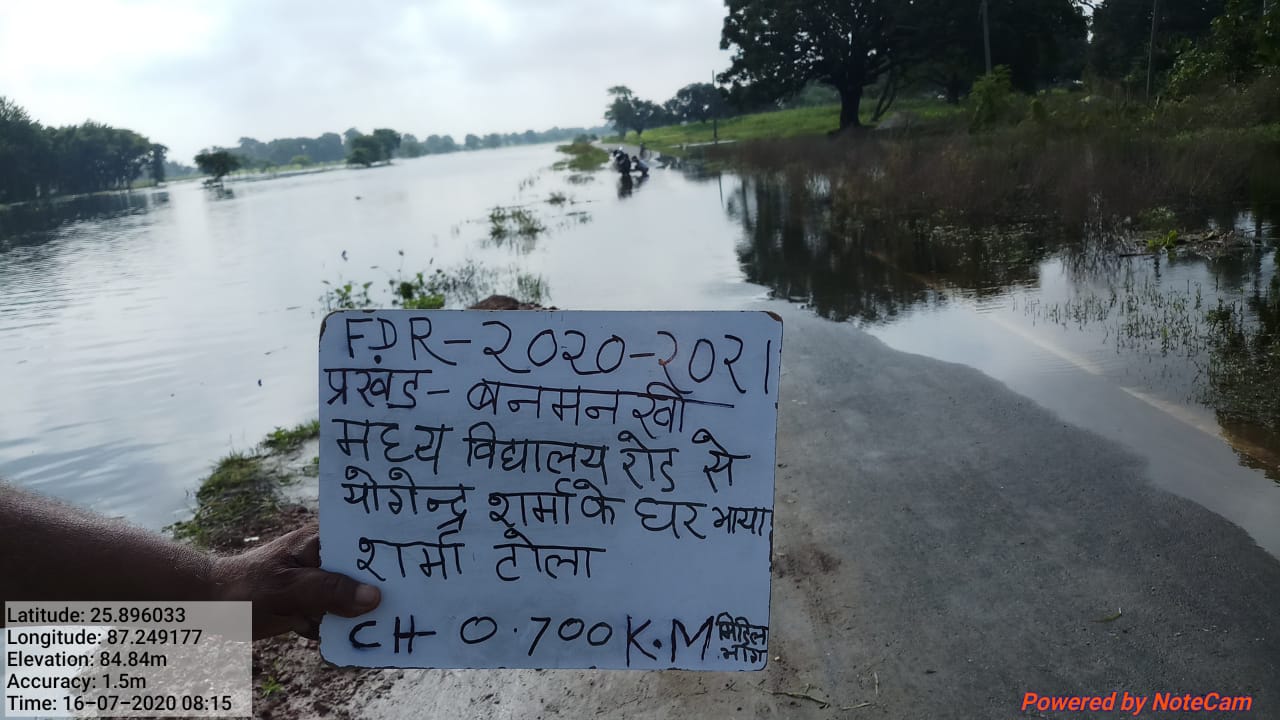 FDR-२०२०-२०२१
प्रखंड - बनमनखी
मध्य विद्यालय रोड से
योगेन्द्र शर्मा के घर भाया
शर्मा टोला
CH- 0.700 K.M मिडिल
भाग
Latitude: 25.896033
Longitude: 87.249177
Elevation: 84.84m
Accuracy: 1.5m
Time: 16-07-2020 08:15
Powered by NoteCam